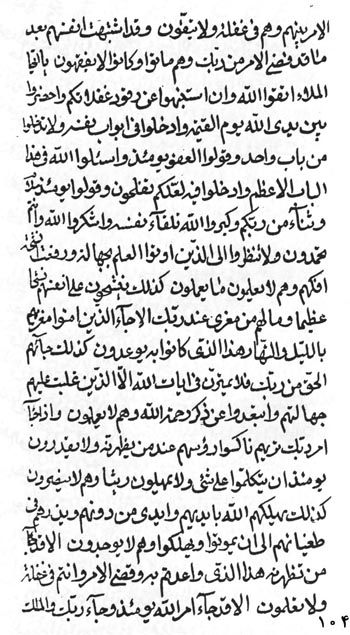 الامر بينهم وهم فى غفلة ولا يتقون وقد اشتبهت انفسهم بعد
ما قد قضى الامر من ربك وهم ماتوا وكانوا لا يفقهون يا ايها
الملاء اتقوا الله وان استنبهوا عن رقود غفلاتكم واحضروا
بين يدى الله يوم القيمة وادخلوا فى ابواب نفسه ولا تدخلوا
من باب واحد وقولوا العفو يومئذ واسئلوا الله فى هذا
الباب الاعظم وادخلوا فيه لعلكم تفلحون وقولوا يومئذ
وثناء من ربكم وكبروا الله تلقاء نفسه واشكروا الله وانتم
تحمدون ولا تنظروا الى الذين اوتوا العلم بجهالة ورفعت
افكهم وهم لا يعلمون ما يعملون كذلك على انفسهم
عظيما وما لهم من مفرى عند ربك الا جاء الذين امنوا
بالليل والنهار هذا الذى كانوا به يوعدون كذلك جائهم
الحق من ربك فلا يمترن فى ايات الله الا الذين غلبت عليهم
جهالتهم وابتعدوا عن ذكر رحمة الله وهم لا يعلمون واذا جاء
امر ربك تريهم ناكسوا رؤسهم عند من يظهر به ولا يقدرون
يومئذ ان يتكلموا على شئ ولا يمهلون ريثا وهم لا ينصرون
كذلك يهلكهم الله بايديهم وايدى من دونهم ويذرهم فى
طغيانهم الى ان يموتوا ويهلكوا وهم لا يوجدون الا قد جاء
من تظهر به هذا الذى واعدتم به وقضى الامر وانتم فى غفلة
ولا تعلمون الا قد جاء امر الله يومئذ وجاء ربك والملك
١٠٤